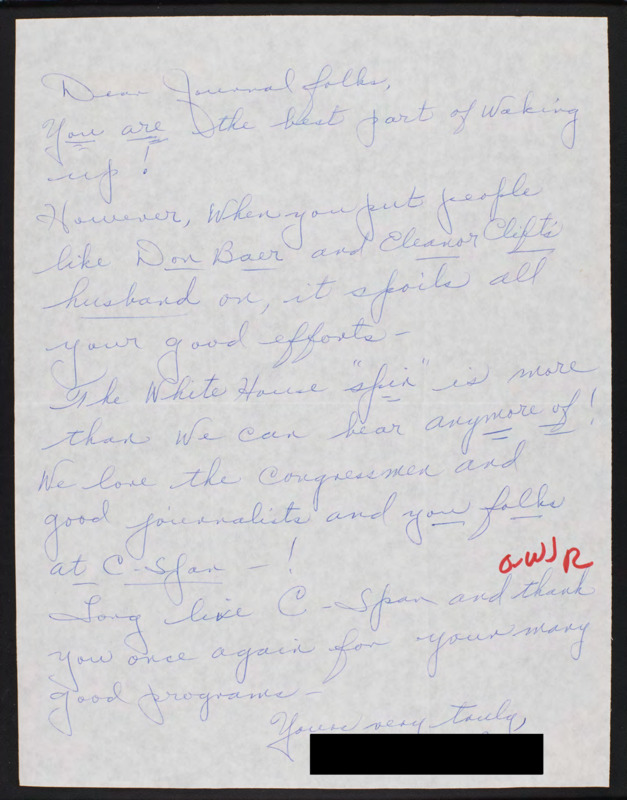 Dear Journal folks,
You are the best part of waking
up!
However, when you put people
like Don Baer and Eleanor Clift's
husband on, it spoils all
your good efforts -
The White House "spin" is more
than we can bear anymore of!
We love the Congressmen and
good journalists and you folks
at C-Span - !
Long live C-Span and thank
you once again for your many
good programs -
Yours very truly,